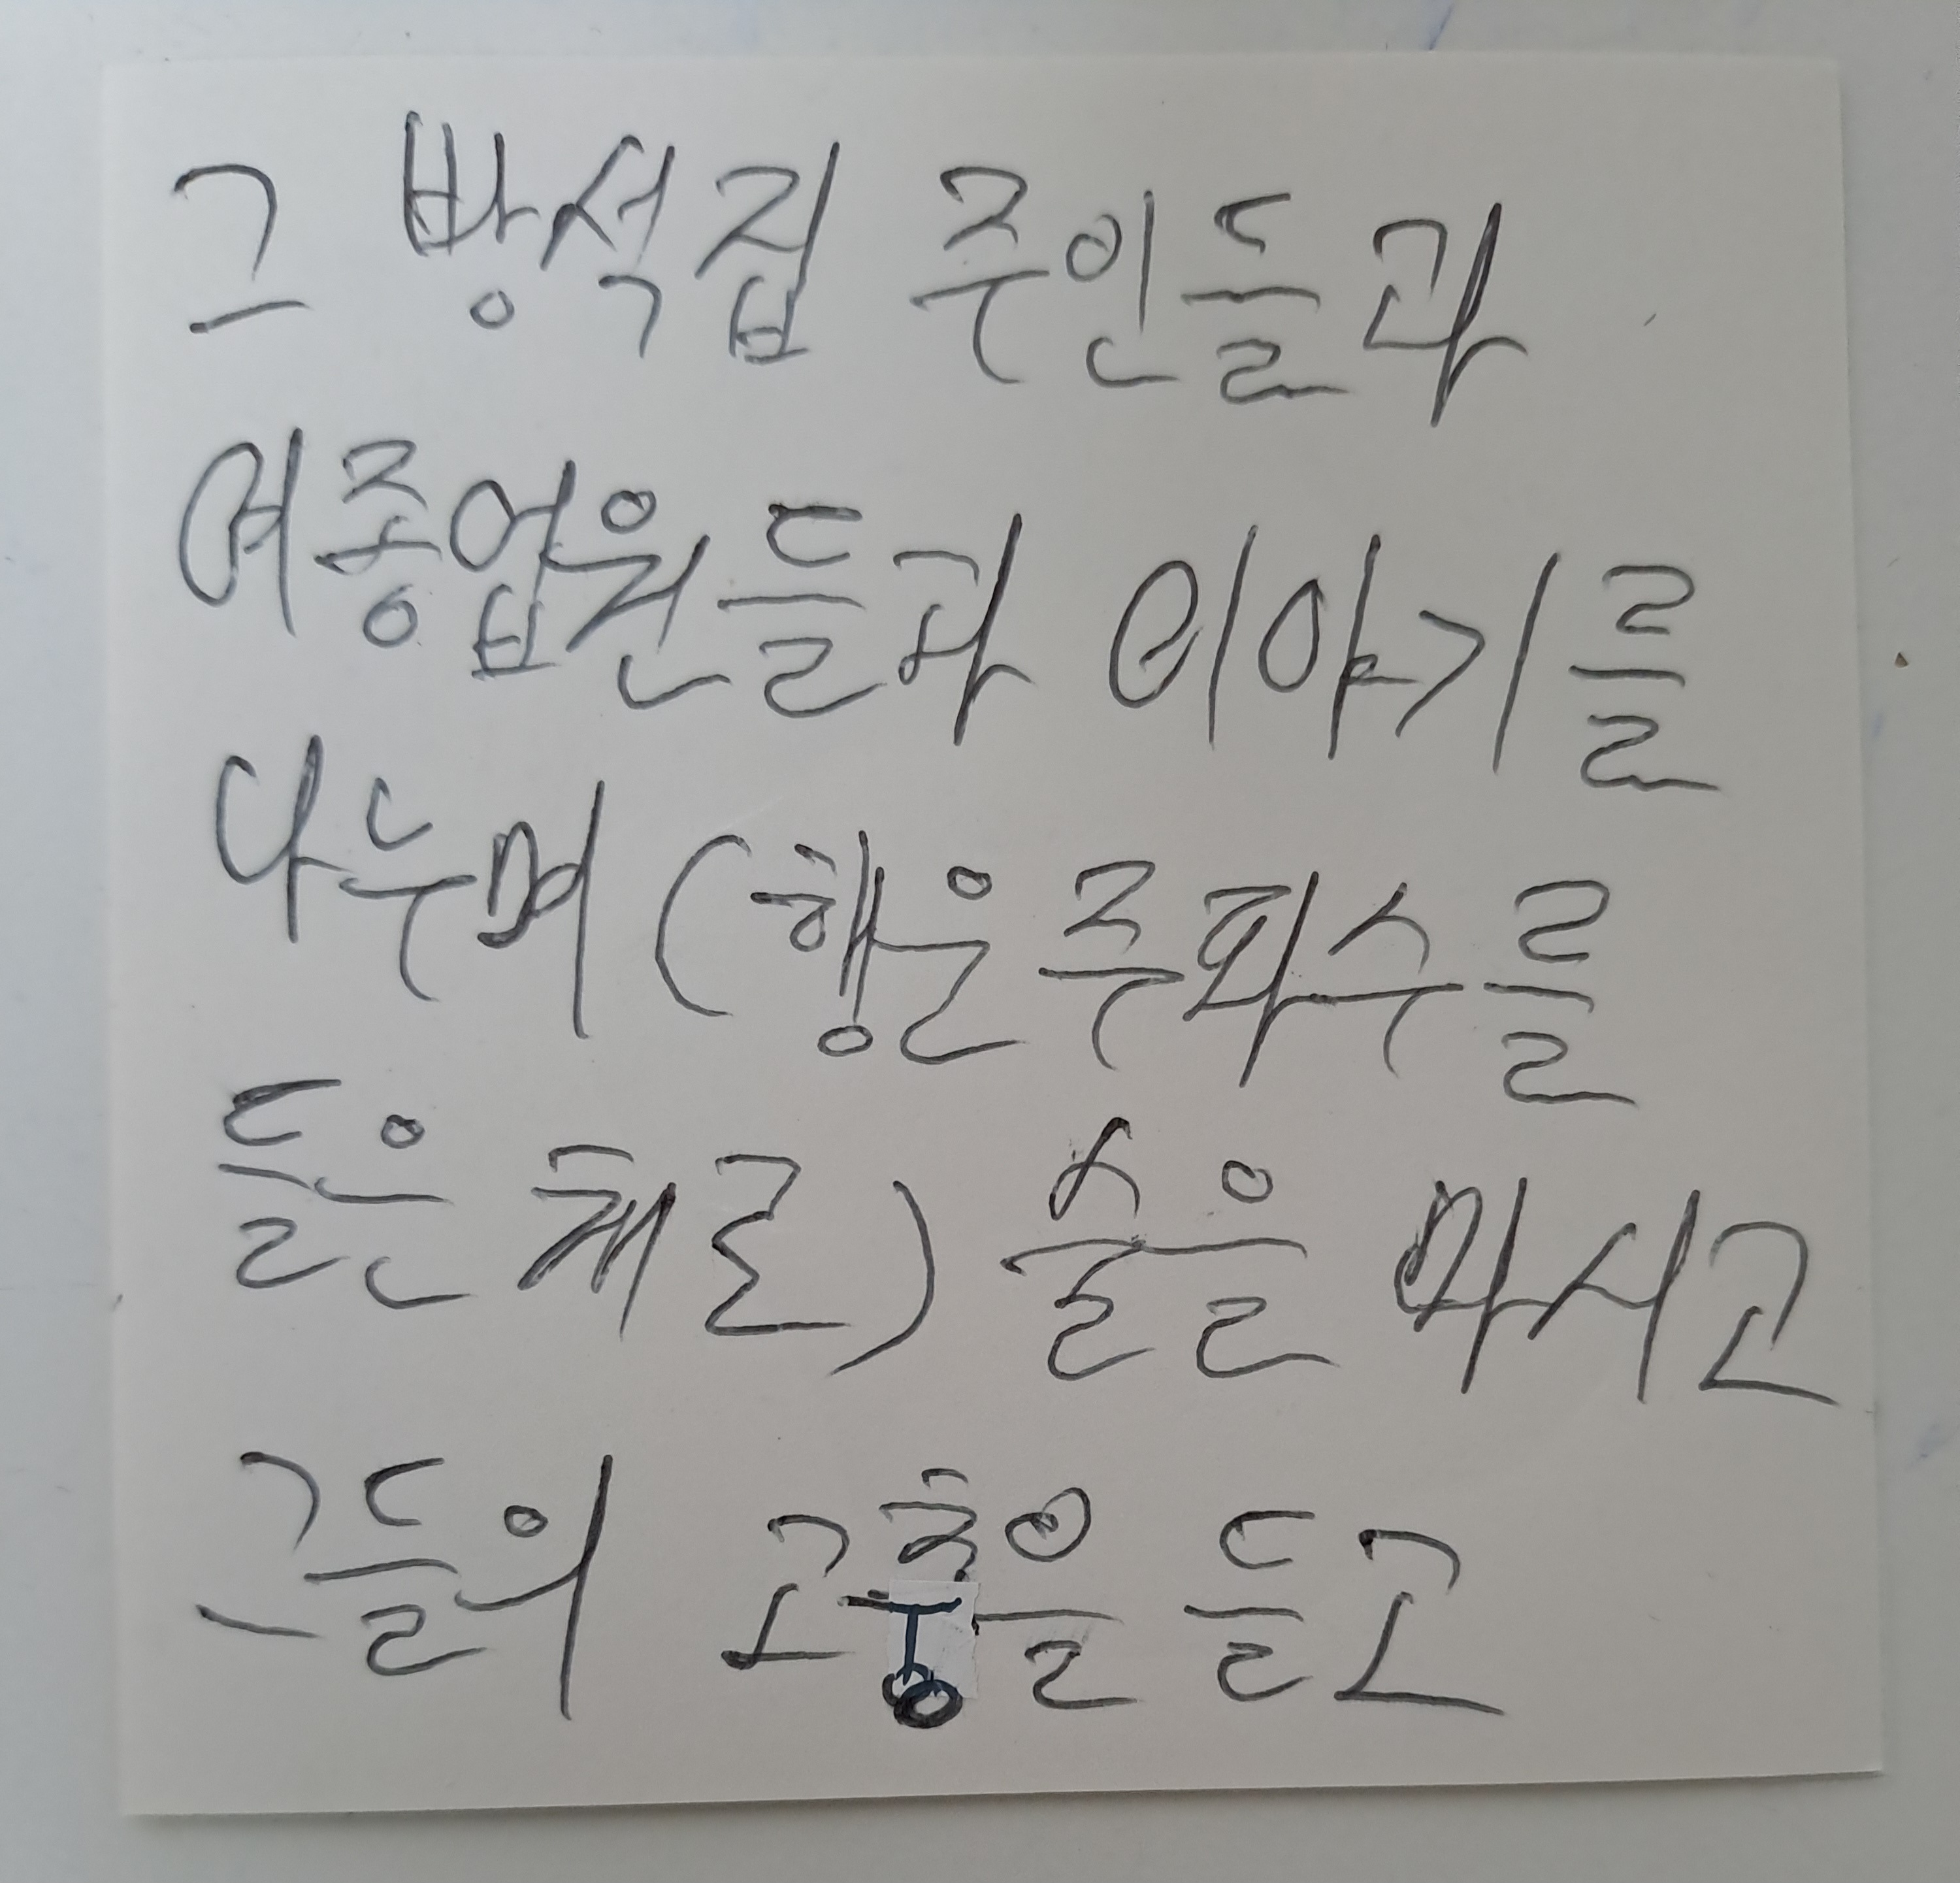 그 방석집 주인들과
여종업원들과 이야기를
나누며 (행운주파수를
틀은채로) 술을 마시고
그들의 고충을 듣고